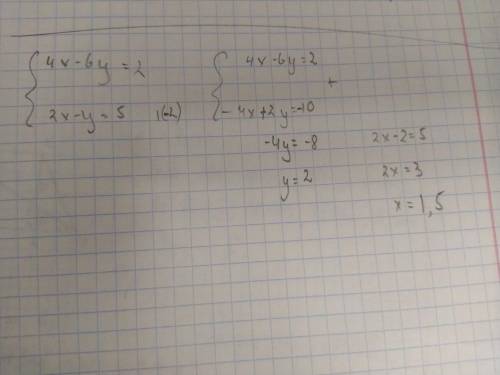 4x-6y=2
2x-y=5 |(-2)
4x-6y=2
+
-4x+2y=-10
-4y=-8
y=2
2x-2=5
2x=3
x=1,5